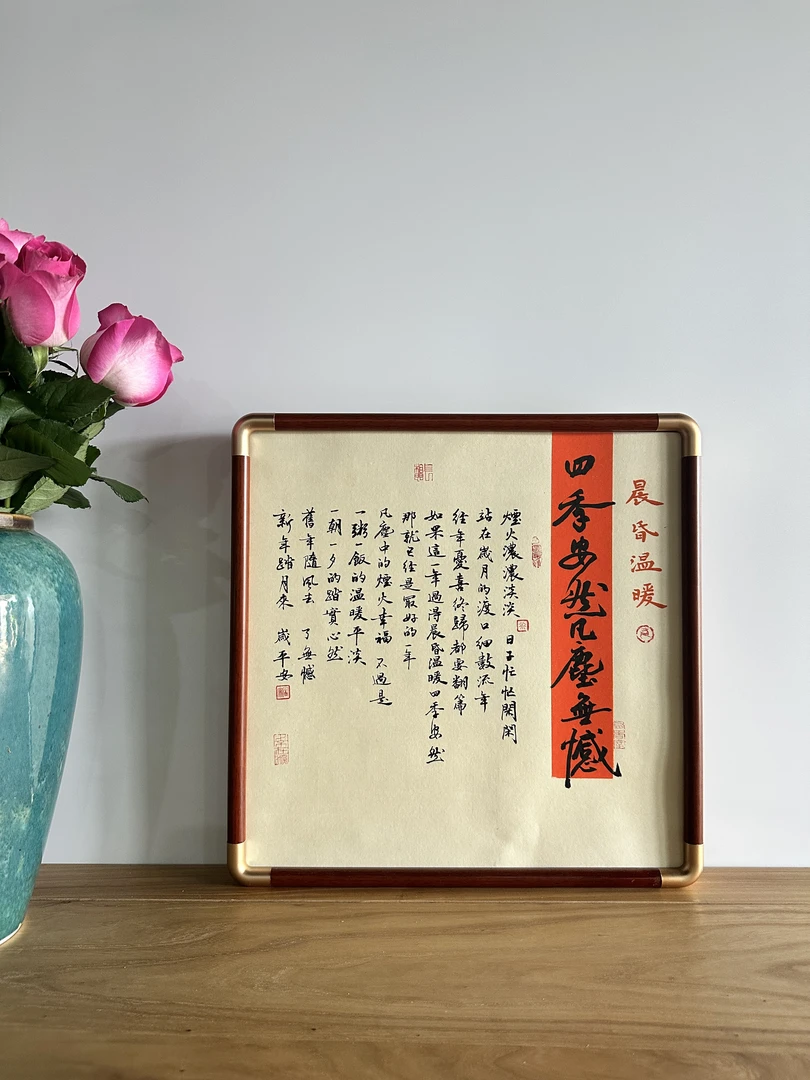 晨昏温暖
四季安然凡塵無憾
煙火濃濃淡淡 日子忙忙閑閑
站在歲月的渡口細數流年
經年憂喜終歸都要翻篇
如果這一年過得晨昏温暖四季安然
那就已經是最好的一年
凡塵中的煙火幸福 不過是
一粥一飯的温暖平淡
一朝一夕的踏實心然
舊年隨風去 了無憾
新年踏月來 歲平安